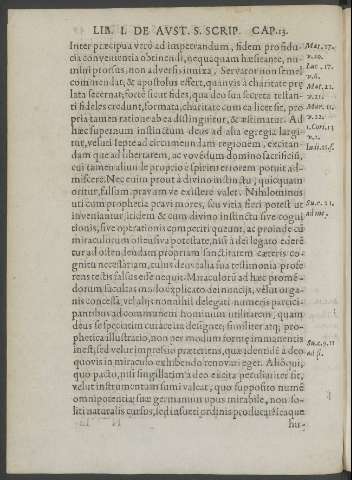 LIB. I. DE AVST. S. SCRIP. CAP.13.
Inter præcipua verò ad impetrandum, fidem pro fidu-
cia conuenientia obtinendi, nequaquam hæsitante, nu-
mini prorsus, non aduersis innixa, Seruator non semel
commendat; & apostolus effert, quamuis à charitate præ
lata secernat; sicut fides, qua deo sua secreta testan-
ti fideles credunt, formata, charitate cum ea licet sit, pro
pria tamen ratione ab ea distinguitur, & æstimatur. Ad
hæc supernum instinctum deus ad alia egregia largi-
tur, veluti Iepte ad circumeundam regionem, excitan
dam que ad libertatem, ac vouendum domino sacrificiū,
cui tamen diuino proprio spiritu errorem potuit ad-
miscere. Nec enim prout à diuino instinctu, quicquam
oritur, falsum, prauumve existere valet. Nihilominus
uti cum prophetia praui mores, seu vitia fieri potest ut
inueniantur; itidem & cum diuino instinctu siue cogni
tionis, siue operationis comperiri queunt, ac proinde cū
miraculorum ostensiua potestate, nisi à dei legato edere
tur ad ostendendam propriam sanctitatem cæteris co-
gnitu necessariam, cuius deus alia sua testimonia profe
rens testis falsus esse nequit. Miraculorū ad hæc prome-
dorum facultas modo explicato dei nuncijs, velut orga-
nis concessa, vel alijs nonnisi delegati numeris partici-
pantibus ad communem hominum utilitatem, quam
deus se spectatim curare ita designet; similiter atq; pro-
phetica illustratio, non per modum formę immanentis
inest; sed velut impressio præteriens, quæ identidē à deo
quouis in miraculo exhibendo renouari eget. Alioqui,
quo pacto, nisi singillatim à deo excita per diuinter sit,
velut instrumentum sumi valeat, quo supposito numē
omnipotentia; suæ germanum opus mirabile, non so-
liti naturalis cursus, sed insueti ordinis producat; seaque
Mat. 17.
v. 20.
Luc. 17.
v. 6.
Mat. 21.
v. 21.
Mar. 11.
v. 22.
1. Cor. 13
v. 2.
Iudi. 11.